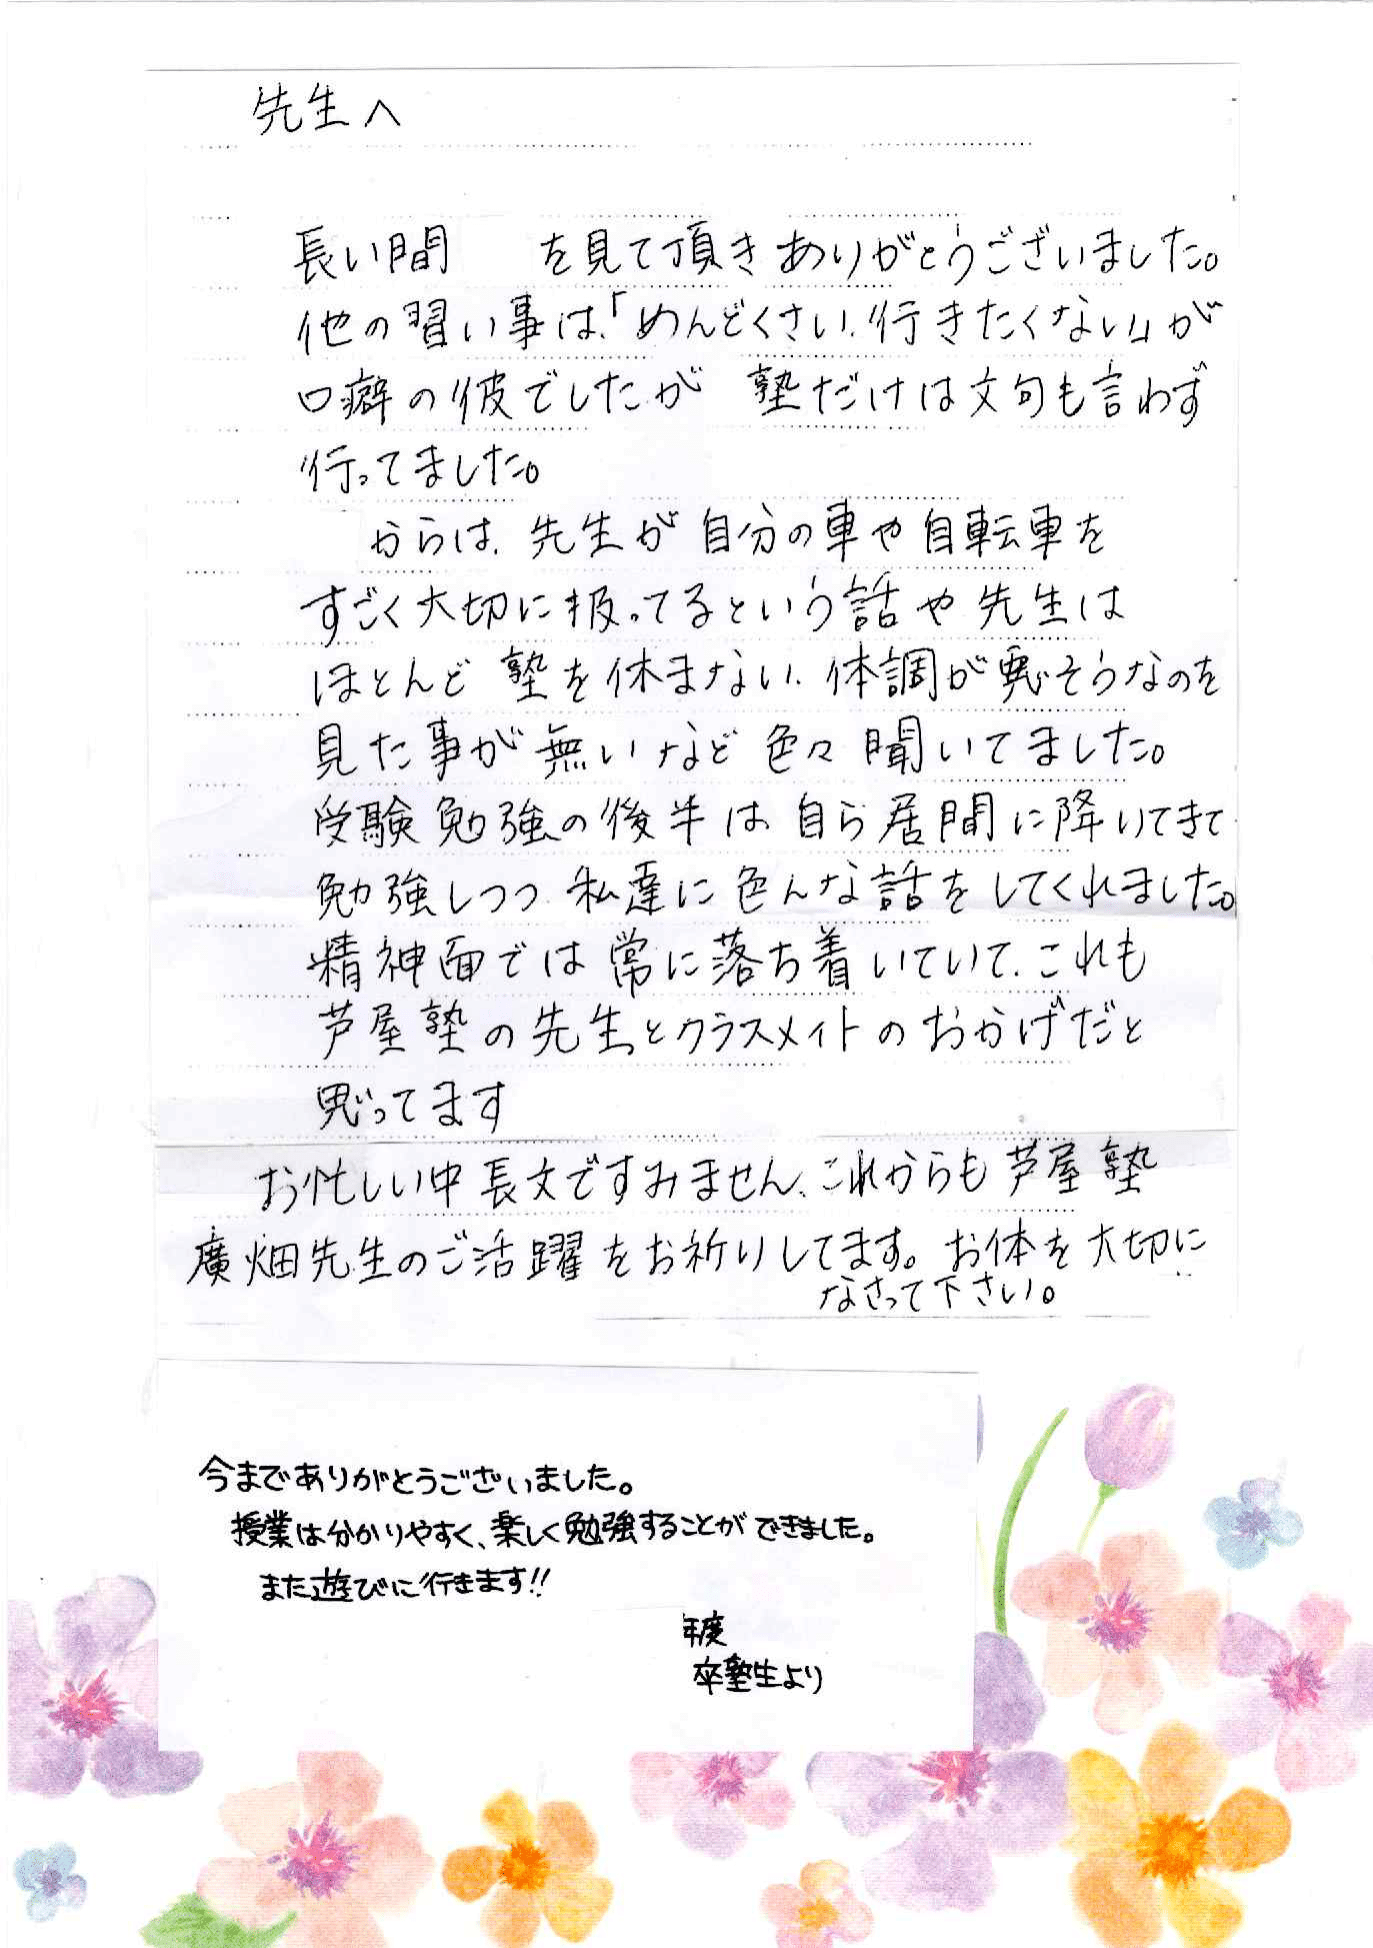 先生へ
長い間　　を見て頂きありがとうございました。
他の習い事は、「めんどくさい、行きたくない」が
口癖の彼でしたが　塾だけは文句も言わず
行ってました。
からは、先生が自分の車や自転車を
すごく大切に扱ってるという話や先生は
ほとんど塾を休まない、体調が悪そうなのを
見た事が無いなど色々聞いてました。
受験勉強の後半は自ら居間に降りてきて
勉強しつつ私達に色んな話をしてくれました。
精神面では常に落ち着いていて、これも
芦屋塾の先生とクラスメイトのおかげだと
思ってます
お忙しい中長文ですみません、これからも芦屋塾
廣畑先生のご活躍をお祈りしてます。お体を大切に
なさって下さい。
今までありがとうございました。
授業は分かりやすく、楽しく勉強することができました。
また遊びに行きます!!
年度
卒塾生より